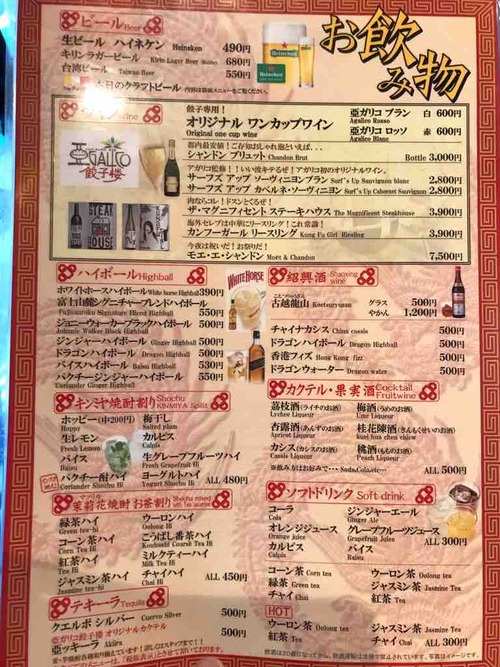 お飲み物
ビール Beer
生ビール ハイネケン Heineken 490円
キリンラガービール Kirin Lager Beer 680円
台湾ビール Taiwan Beer 550円
本日のクラフトビール
餃子専用!
オリジナル ワンカップワイン
Original one cup wine
亜ガリコ ブラン 白 600円
Agalico Rosso
亜ガリコ ロッソ 赤 600円
Agalico Blanc
亜GALICO
餃子楼
シャンドン ブリュット Chandon Brut Bottle 3,000円
サーフズ アップ ソーヴィニヨンブラン Surf's Up Sauvignon blanc 2,800円
サーフズ アップ カベルネ・ソーヴィニヨン Surf's Up Cabernet Sauvignon 2,800円
肉ならコレ!ドスンとくるぜ!
ザ・マグニフィセント ステーキハウス The Magnificent Steakhouse 3,900円
カンフーガール リースリング Kung Fu Girl Riesling 3,900円
今夜は祝いだ!お祭りだ!
モエ・エ・シャンドン Moet & Chandon 7,500円
STEAK
HOUSE
ハイボール Highball
ホワイトホースハイボール White horse Highball 390円
富士山麓シグニチャーブレンドハイボール
Fujisanroku Signature Blend Highball 550円
ジョニーウォーカーブラックハイボール 500円
Johnnie Walker Black Highball
ジンジャーハイボール Ginger Highball 500円
ドラゴンハイボール Dragon Highball 500円
バイスハイボール Baisu Highball 530円
パクチージンジャーハイボール 550円
Coriander Ginger Highball
WHITE HORSE
紹興酒 Shaoxing wine
古越龍山 Koetsuryuzan グラス 500円
やかん 1,200円
チャイナカシス China cassis 500円
ドラゴンハイボール Dragon Highball 500円
香港フィズ Hong Kong fizz 500円
ドラゴンウォーター Dragon water 500円
キンミヤ焼酎割り Shochu KINMIYA Split
ホッピー(中200円)
Hoppy
梅干し
Salted plum
生レモン
Fresh Lemon
カルピス
Calpis
バイス
Baisu
生グレープフルーツハイ
Fresh Grapefruit Hi
パクチー酎ハイ
Coriander Shochu Hi
ヨーグルトハイ
Yogurt Shochu Hi
ALL 480円
カクテル・果実酒 Cocktail Fruitwine
荔枝酒(ライチのお酒)
Lychee Liqueur
梅酒(うめのお酒)
Ume Liqueur
杏露酒(あんずのお酒)
Apricot Liqueur
桂花陳酒(きんもくせいのお酒)
kuei hua chen chiew
カシス(カシスのお酒)
Cassis Liqueur
桃酒(もものお酒)
Peach Liqueur
※飲み方はお好みで・・・Soda,Cola,etc… ALL 500円
茉莉花焼酎 お茶割り Shochu mixed with Tea Jasmine
緑茶ハイ
Green tea-hi
ウーロンハイ
Oolong Hi
コーン茶ハイ
Corn Tea Hi
こうばし番茶ハイ
Koubashi Coarse Tea Hi
紅茶ハイ
Tea Hi
ミルクティーハイ
Milk Tea Hi
ジャスミン茶ハイ
Jasmine tea-hi
チャイハイ
Chai Hi
ALL 450円
ソフトドリンク Soft drink
コーラ
Cola
ジンジャーエール
Ginger Ale
オレンジジュース
Orange juice
グレープフルーツジュース
Grapefruit Juice
カルピス
Calpis
バイス
Baisu
ALL 300円
コーン茶 Corn tea
ウーロン茶 Oolong tea
緑茶 Green tea
ジャスミン茶 Jasmine Tea
チャイ Chai
紅茶 Tea
HOT
ウーロン茶 Oolong tea
ジャスミン茶 Jasmine Tea
紅茶 Tea
チャイ Chai
ALL 300円
テキーラ Tequila
クエルボ シルバー Cuervo Silver 500円
亜ガリコ餃子楼 オリジナルカクテル
亜ッキーラ Akiira 500円